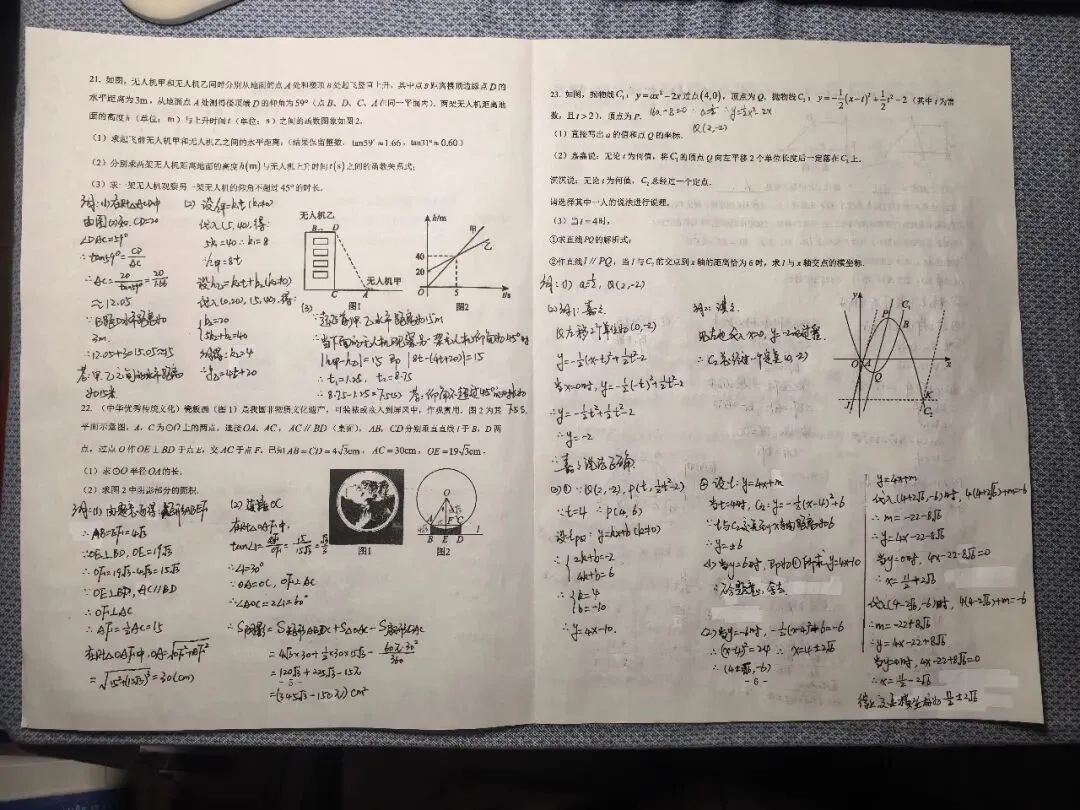 21. 如图，无人机甲和无人机乙同时分别从地面的点 A 处和楼顶 B 处起飞竖直上升，其中点 B 距离楼顶边缘点 D 的
水平距离为3m，从地面点 A 处测得楼顶端 D 的仰角为59°（点 B、D、C、A 在同一平面内），两架无人机距离地
面的高度 h（单位：m）与上升时间 t（单位：s）之间的函数图象如图2.
（1）求起飞前无人机甲和无人机乙之间的水平距离；（结果保留整数，tan59°≈1.66，tan31°≈0.60）
（2）分别求两架无人机距离地面的高度 h(m) 与无人机上升时间 t(s) 之间的函数关系式；
（3）求一架无人机观察另一架无人机的仰角不超过45°的时长.
解:(1)在Rt△ACD中
由图(2)知.CD=20
∠DAC=59°
∴tan59°=CD/AC
∴AC=20/tan59°=20/1.66
≈12.05
3m.
∴12.05+3=15.05≈15
(2) 设h甲=kt(k≠0)
代入(5,40),得:
5k=40 ∴k=8
∴h甲=8t
设h乙=k₂t+b₂(k₂≠0)
代入(0,20),(5,40),得:
{b₂=20
5k₂+b₂=40
解得:k₂=4
∴h乙=4t+20
无人机乙
B D
无人机甲
C A
图1
h/m
甲
乙
40
20
O 5 t/s
图2
(3)
|h甲-h乙|=15 即 |8t-(4t+20)|=15
∴t₁=1.25, t₂=8.75
∴8.75-1.25=7.5(s)
7.5s.
22. （中华优秀传统文化）瓷板画（图1）是我国非物质文化遗产，可装裱或嵌入到屏风中，作观赏用，图2为其
平面示意图，A，C 为⊙O上的两点，连接OA，AC，AC∥BD（桌面），AB，CD分别垂直直线 l 于 B，D 两
点，过点 O 作 OE⊥BD 于点 E，交 AC 于点 F，已知 AB=CD=4√3cm，AC=30cm，OE=19√3cm.
（1）求⊙O 半径 OA 的长.
（2）求图2中阴影部分的面积.
∴AB=EF=4√3
∵OE⊥BD, OE=19√3
∴OF=19√3-4√3=15√3
∵OE⊥BD, AC∥BD
∴OF⊥AC
∴AF=½AC=15
在Rt△OAF中,OA=√OF²+AF²
=√15²+(15√3)²=30(cm)
(2) 连接OC
在Rt△OAF中.
tan∠1=AF/OF=15/15√3=√3/3
∴∠1=30°
∵OA=OC, OF⊥AC
∴∠AOC=2∠1=60°
∴S阴影=S矩形ABDC+S△OAC-S扇形OAC
=4√3×30+½×30×15√3-60π·30²/360
=120√3+225√3-150π
=(345√3-150π)cm²
图1
O
A F C
B E D l
图2
- 5 -
23. 如图，抛物线 C₁：y=ax²-2x 过点 (4,0)，顶点为 Q. 抛物线 C₂：y=-½(x-t)²+½t²-2（其中 t 为常
数，且 t>2），顶点为 P.
16a-8=0 ∴a=½ ∴y=½x²-2x
Q(2,-2)
（1）直接写出 a 的值和点 Q 的坐标.
（2）嘉嘉说：无论 t 为何值，将 C₁ 的顶点 Q 向左平移2个单位长度后一定落在 C₂ 上.
淇淇说：无论 t 为何值，C₂ 总经过一个定点.
请选择其中一人的说法进行说理.
（3）当 t=4 时，
①求直线 PQ 的解析式；
②作直线 l∥PQ，当 l 与 C₂ 的交点到 x 轴的距离恰为6时，求 l 与 x 轴交点的横坐标.
解:(1) a=½, Q(2,-2)
Q左移2个单位为(0,-2)
y=-½(x-t)²+½t²-2
当x=0时,y=-½(-t)²+½t²-2
∴y=-½t²+½t²-2
∴y=-2
y C₁
P
B
O A Q x
K
C₂
(3)① ∵Q(2,-2), P(t,½t²-2)
∵t=4 ∴P(4,6)
设lPQ:y=kx+b(k≠0)
{2k+b=-2
4k+b=6
∴{k=4
b=-10
∴y=4x-10.
② 设l:y=4x+m
当t=4时, C₂:y=-½(x-4)²+6
∴y=±6
(2)当y=-6时, -½(x-4)²+6=-6
∴(x-4)²=24 ∴x=4±2√6
∴(4±2√6,-6)
- 6 -
y=4x+m
代入(4+2√6,-6)时, 4(4+2√6)+m=-6
∴m=-22-8√6
∴y=4x-22-8√6
当y=0时, 4x-22-8√6=0
∴x=11/2+2√6
代入(4-2√6,-6)时, 4(4-2√6)+m=-6
∴m=-22+8√6
∴y=4x-22+8√6
当y=0时, 4x-22+8√6=0
∴x=11/2-2√6